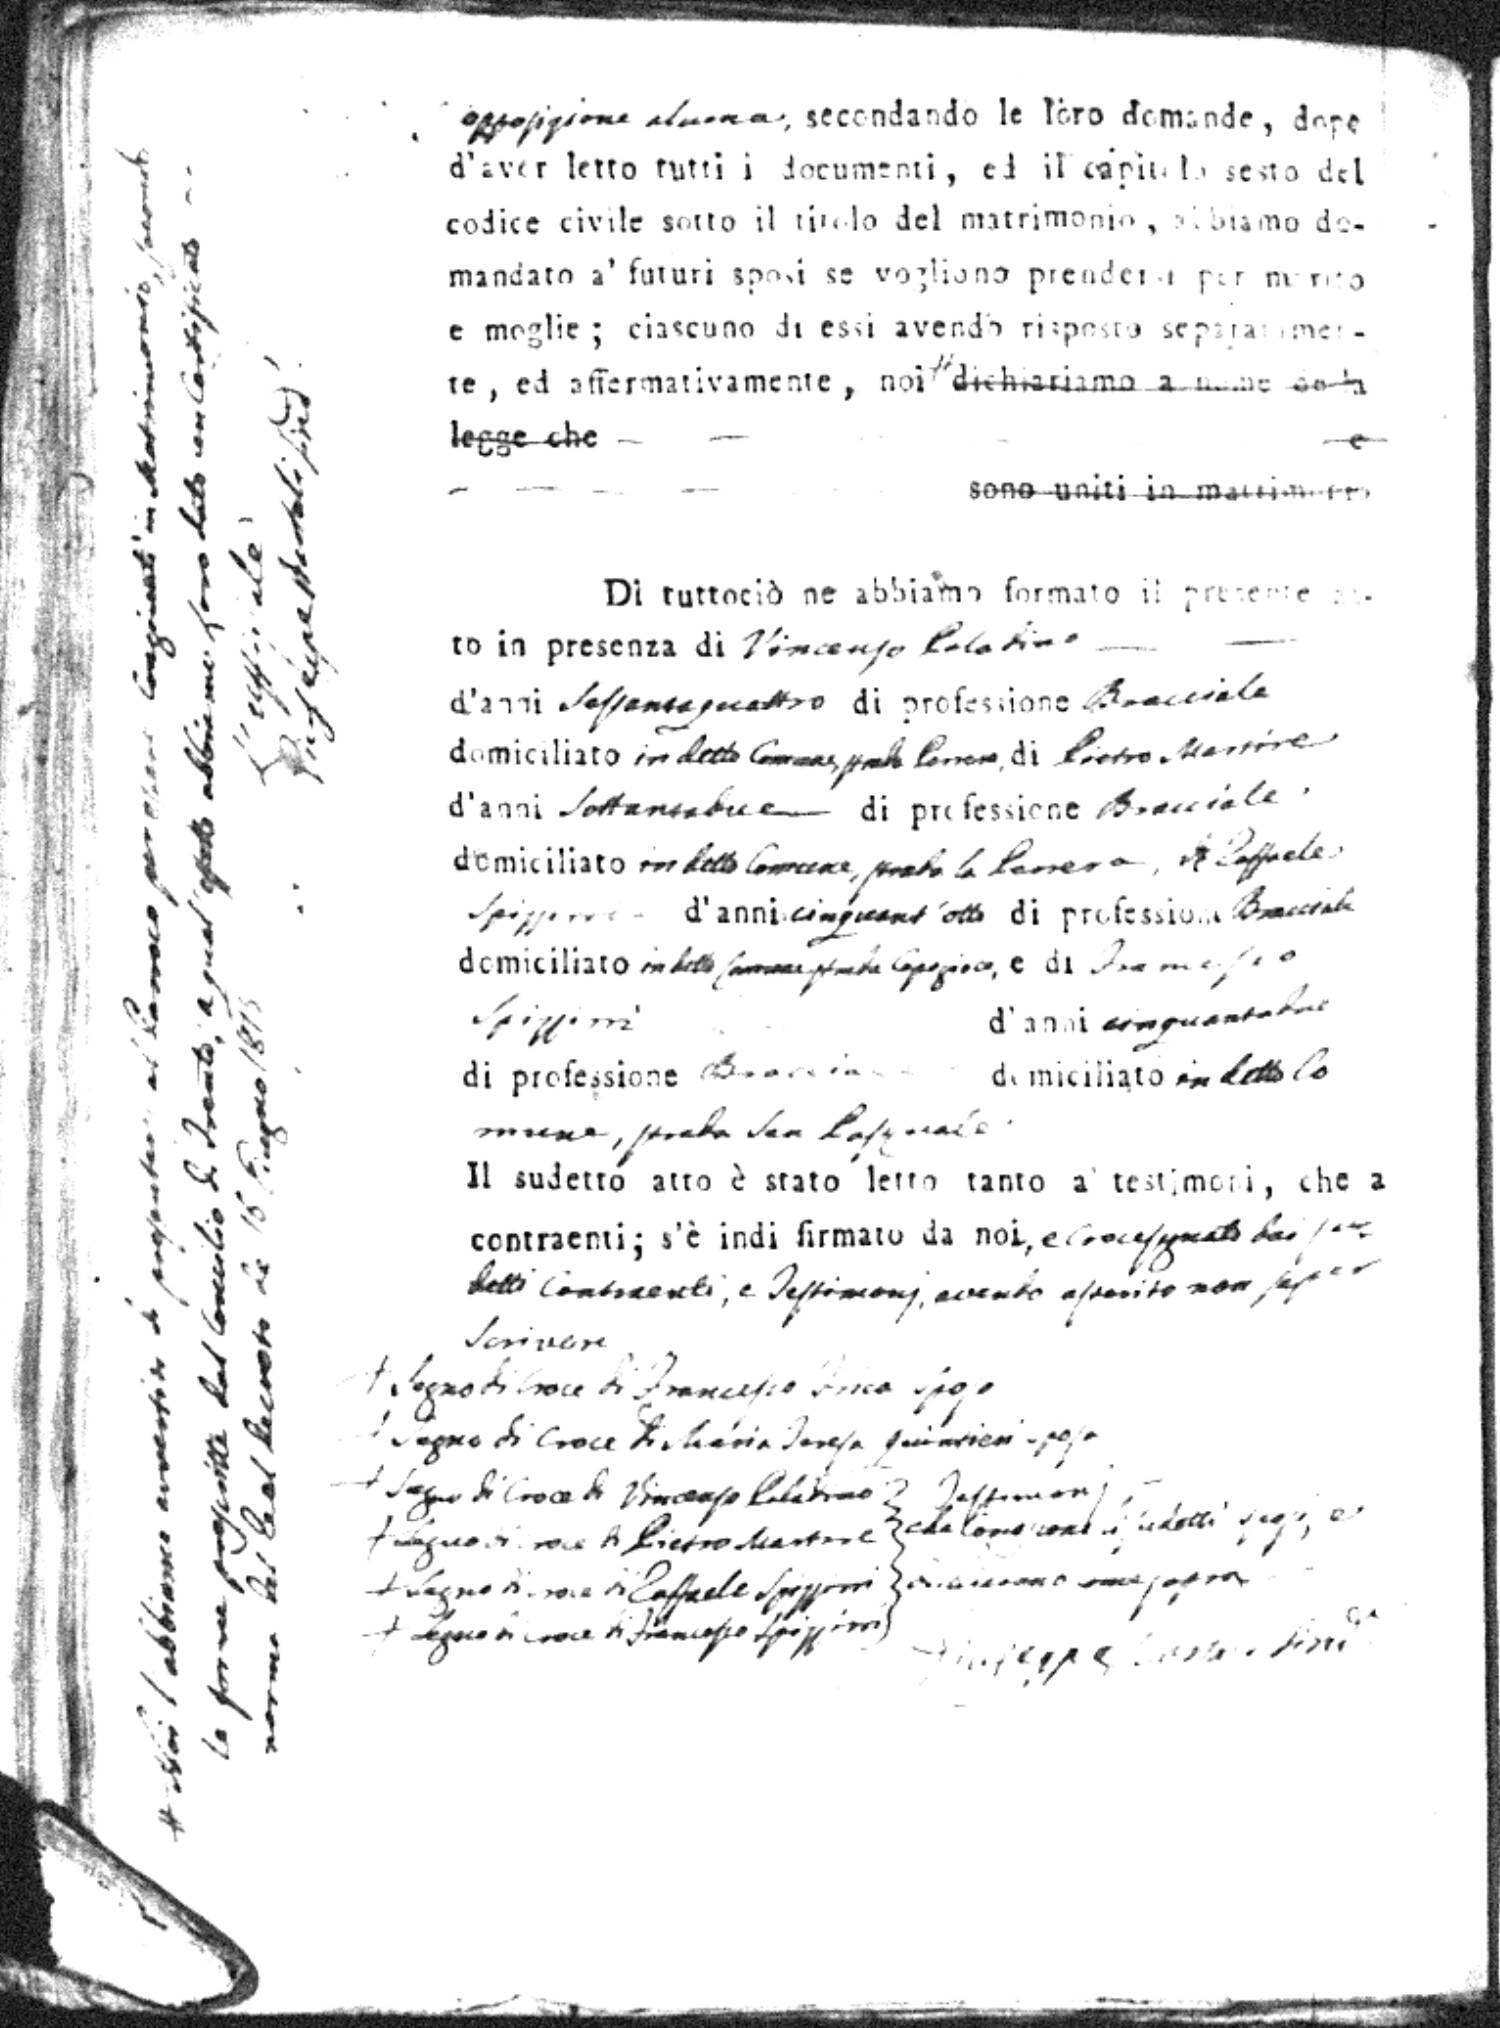 opposizione alcuna, secondando le loro domande, dopo
d'aver letto tutti i documenti, ed il capitolo sesto del
codice civile sotto il titolo del matrimonio, abbiamo do-
mandato a' futuri sposi se vogliono prendersi per marito
e moglie; ciascuno di essi avendo risposto separatamen-
te, ed affermativamente, noi # dichiariamo a nome della
legge che e
sono uniti in matrimonio
Di tuttociò ne abbiamo formato il presente at-
to in presenza di Vincenzo Paladino
d'anni Sessantaquattro di professione Bracciale
domiciliato in detto Comune, strada Carrera, di Pietro Martire
d'anni Settantadue di professione Bracciale
domiciliato in detto Comune, strada la Carrera, di Raffaele
Spizzirri d'anni cinquant'otto di professione Bracciale
domiciliato in detto Comune strada, e di Francesco
Spizzirri d'anni cinquantadue
di professione Bracciale domiciliato in detto Co
mune, strada San Pasquale
Il sudetto atto è stato letto tanto a' testimoni, che a
contraenti; s'è indi firmato da noi, e Crocesegnato dai sud
detti Contraenti, e Testimonj, avendo asserito non saper
Scrivere
+ Segno di Croce di Francesco Sposo
+ Segno di Croce di Maria Teresa Quintieri sposa
+ Segno di Croce di Vincenzo Paladino } Testimonj
+ Segno di Croce di Pietro Martire } che conoscono i sudetti sposi, e
+ Segno di Croce di Raffaele Spizzirri } come sopra
+ Segno di Croce di Francesco Spizzirri }
Giuseppe
# Noi l'abbiamo avvertito di presentarsi al Parroco per essere Congionti in Matrimonio, secondo
le forme prescritte dal Concilio di Trento, a qual'effetto abbiamo Loro dato un Certificato
norma del Real Decreto de 16 Giugno 1815
L'uffiziale
Giuseppe